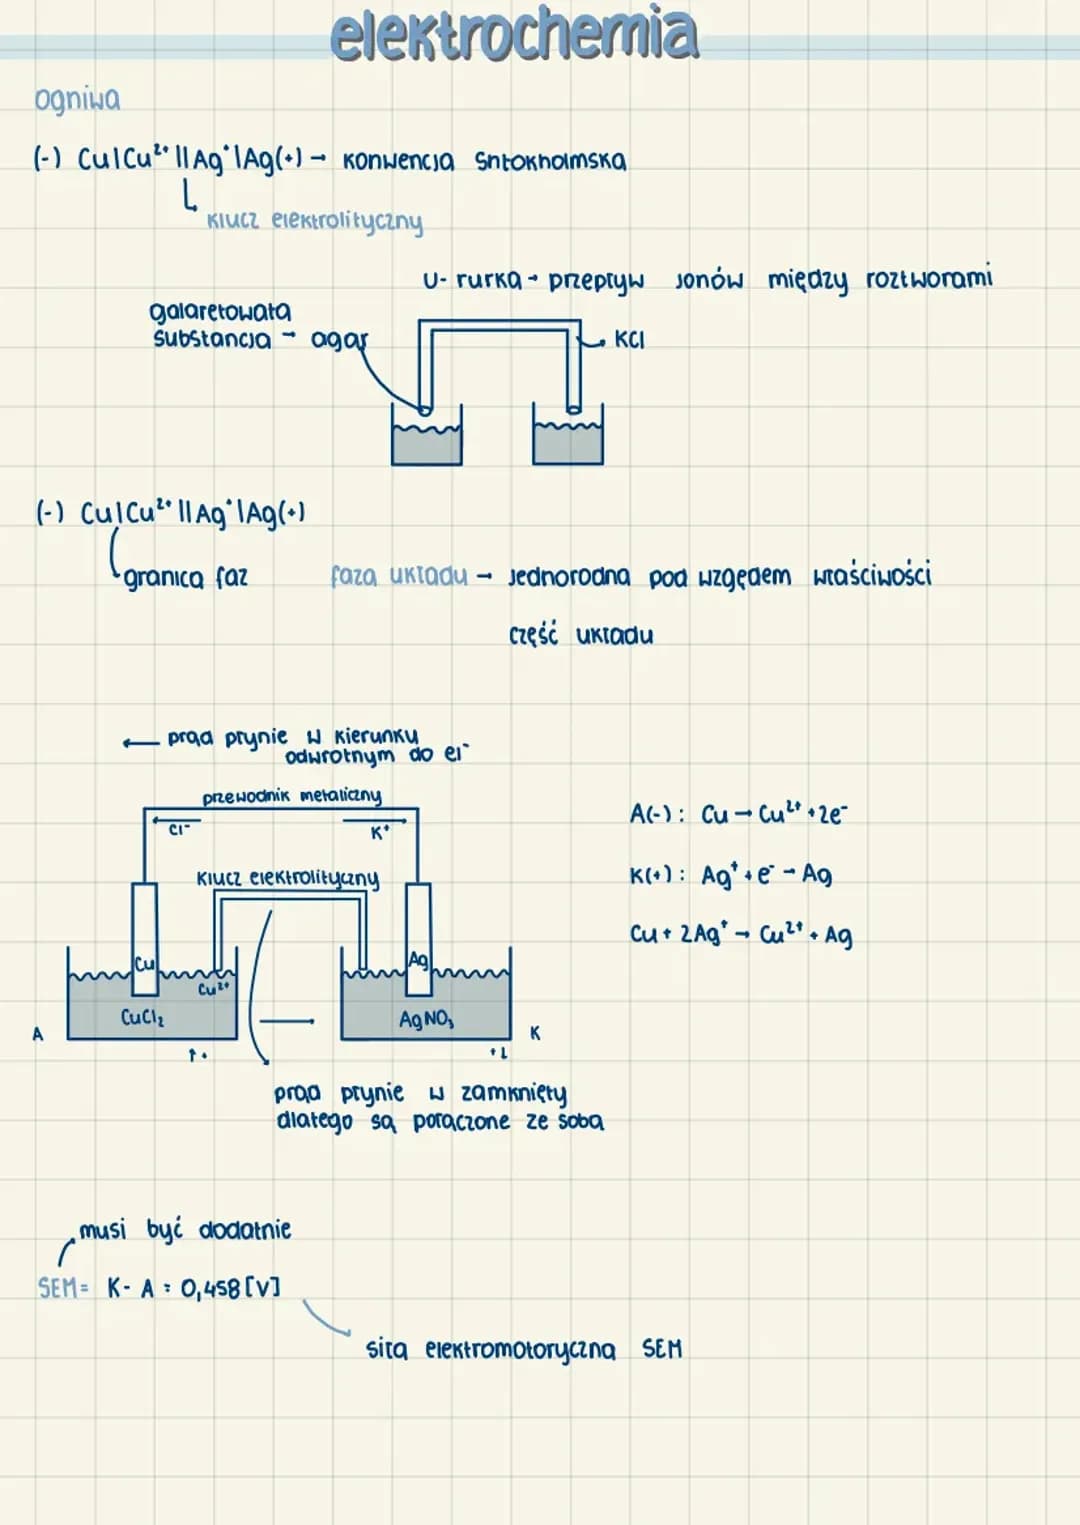 elektrochemia
ogniwa
(-) Cu|Cu²⁺ || Ag⁺ | Ag(+) → konwencja Sntokholmska
klucz elektrolityczny
U- rurka → przepływ jonów między roztworami
galaretowata
substancja → agar
KCl
(-) Cu|Cu²⁺ || Ag⁺ | Ag(+)
granica faz
faza układu → jednorodna pod wzgędem właściwości
część układu
← prąd płynie w kierunku
odwrotnym do el⁻
przewodnik metaliczny
Cl⁻
K⁺
klucz elektrolityczny
Cu
Cu²⁺
CuCl₂
A
↑ •
Ag
AgNO₃
K
+ ↓
A(-): Cu → Cu²⁺ + 2e⁻
K(+): Ag⁺ + e⁻ → Ag
Cu + 2Ag⁺ → Cu²⁺ + Ag
prąd płynie w zamknięty
dlatego są połączone ze sobą
musi być dodatnie
SEM = K - A = 0,458 [V]
siła elektromotoryczna SEM